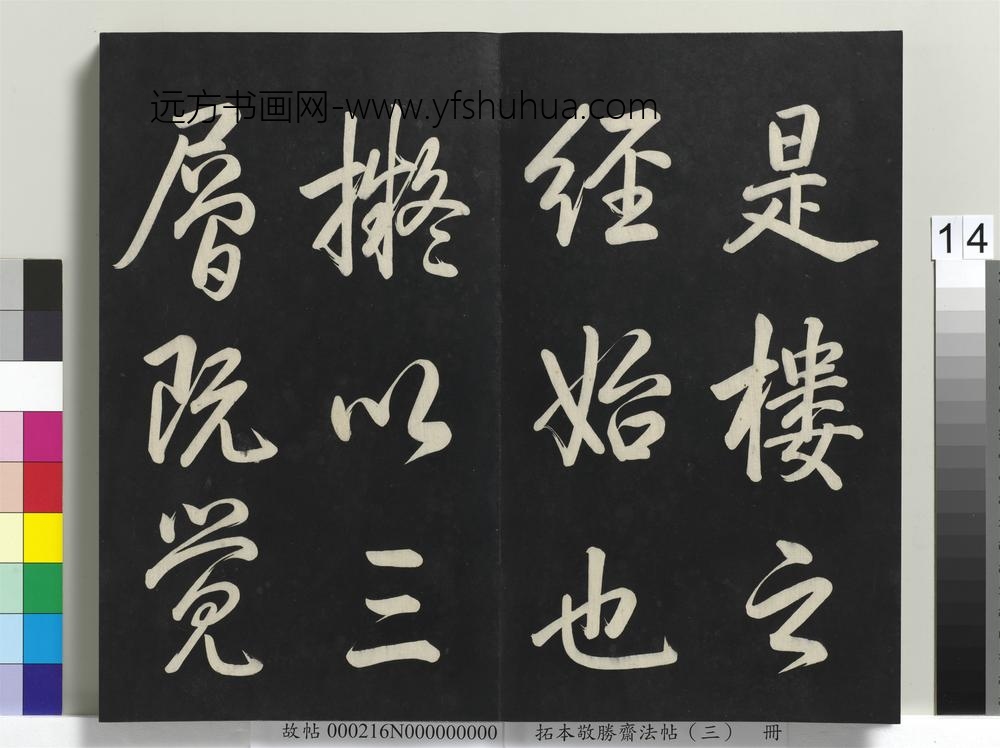 远方书画网-www.yfshuhua.com
是樓之
经始也
擬以三
層既覺
14
故帖 000216N000000000 拓本敬勝齋法帖（三） 冊